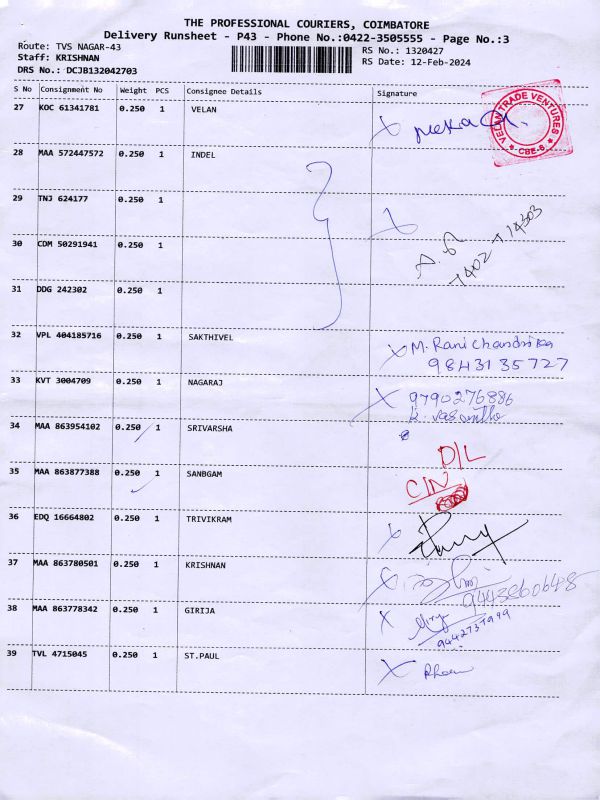 THE PROFESSIONAL COURIERS, COIMBATORE
Delivery Runsheet - P43 - Phone No.:0422-3505555 - Page No.:3
Route: TVS NAGAR-43
RS No.: 1320427
Staff: KRISHNAN
RS Date: 12-Feb-2024
DRS No.: DCJB132042703
S No Consignment No Weight PCS Consignee Details Signature
27 KOC 61341781 0.250 1 VELAN
VELAN TRADE VENTURES
★ CBE-6 ★
28 MAA 572447572 0.250 1 INDEL
29 TNJ 624177 0.250 1
30 COM 50291941 0.250 1
7402 714303
31 DDG 242302 0.250 1
32 VPL 404185716 0.250 1 SAKTHIVEL M. Rani Chandrika
9843135727
33 KVT 3004709 0.250 1 NAGARAJ 9790276886
k. Vasantha
34 MAA 863954102 0.250 1 SRIVARSHA
D/L
35 MAA 863877388 0.250 1 SANBGAM C/N
36 EDQ 16664802 0.250 1 TRIVIKRAM
37 MAA 863780501 0.250 1 KRISHNAN
9443860648
38 MAA 863778342 0.250 1 GIRIJA
39 TVL 4715045 0.250 1 ST.PAUL